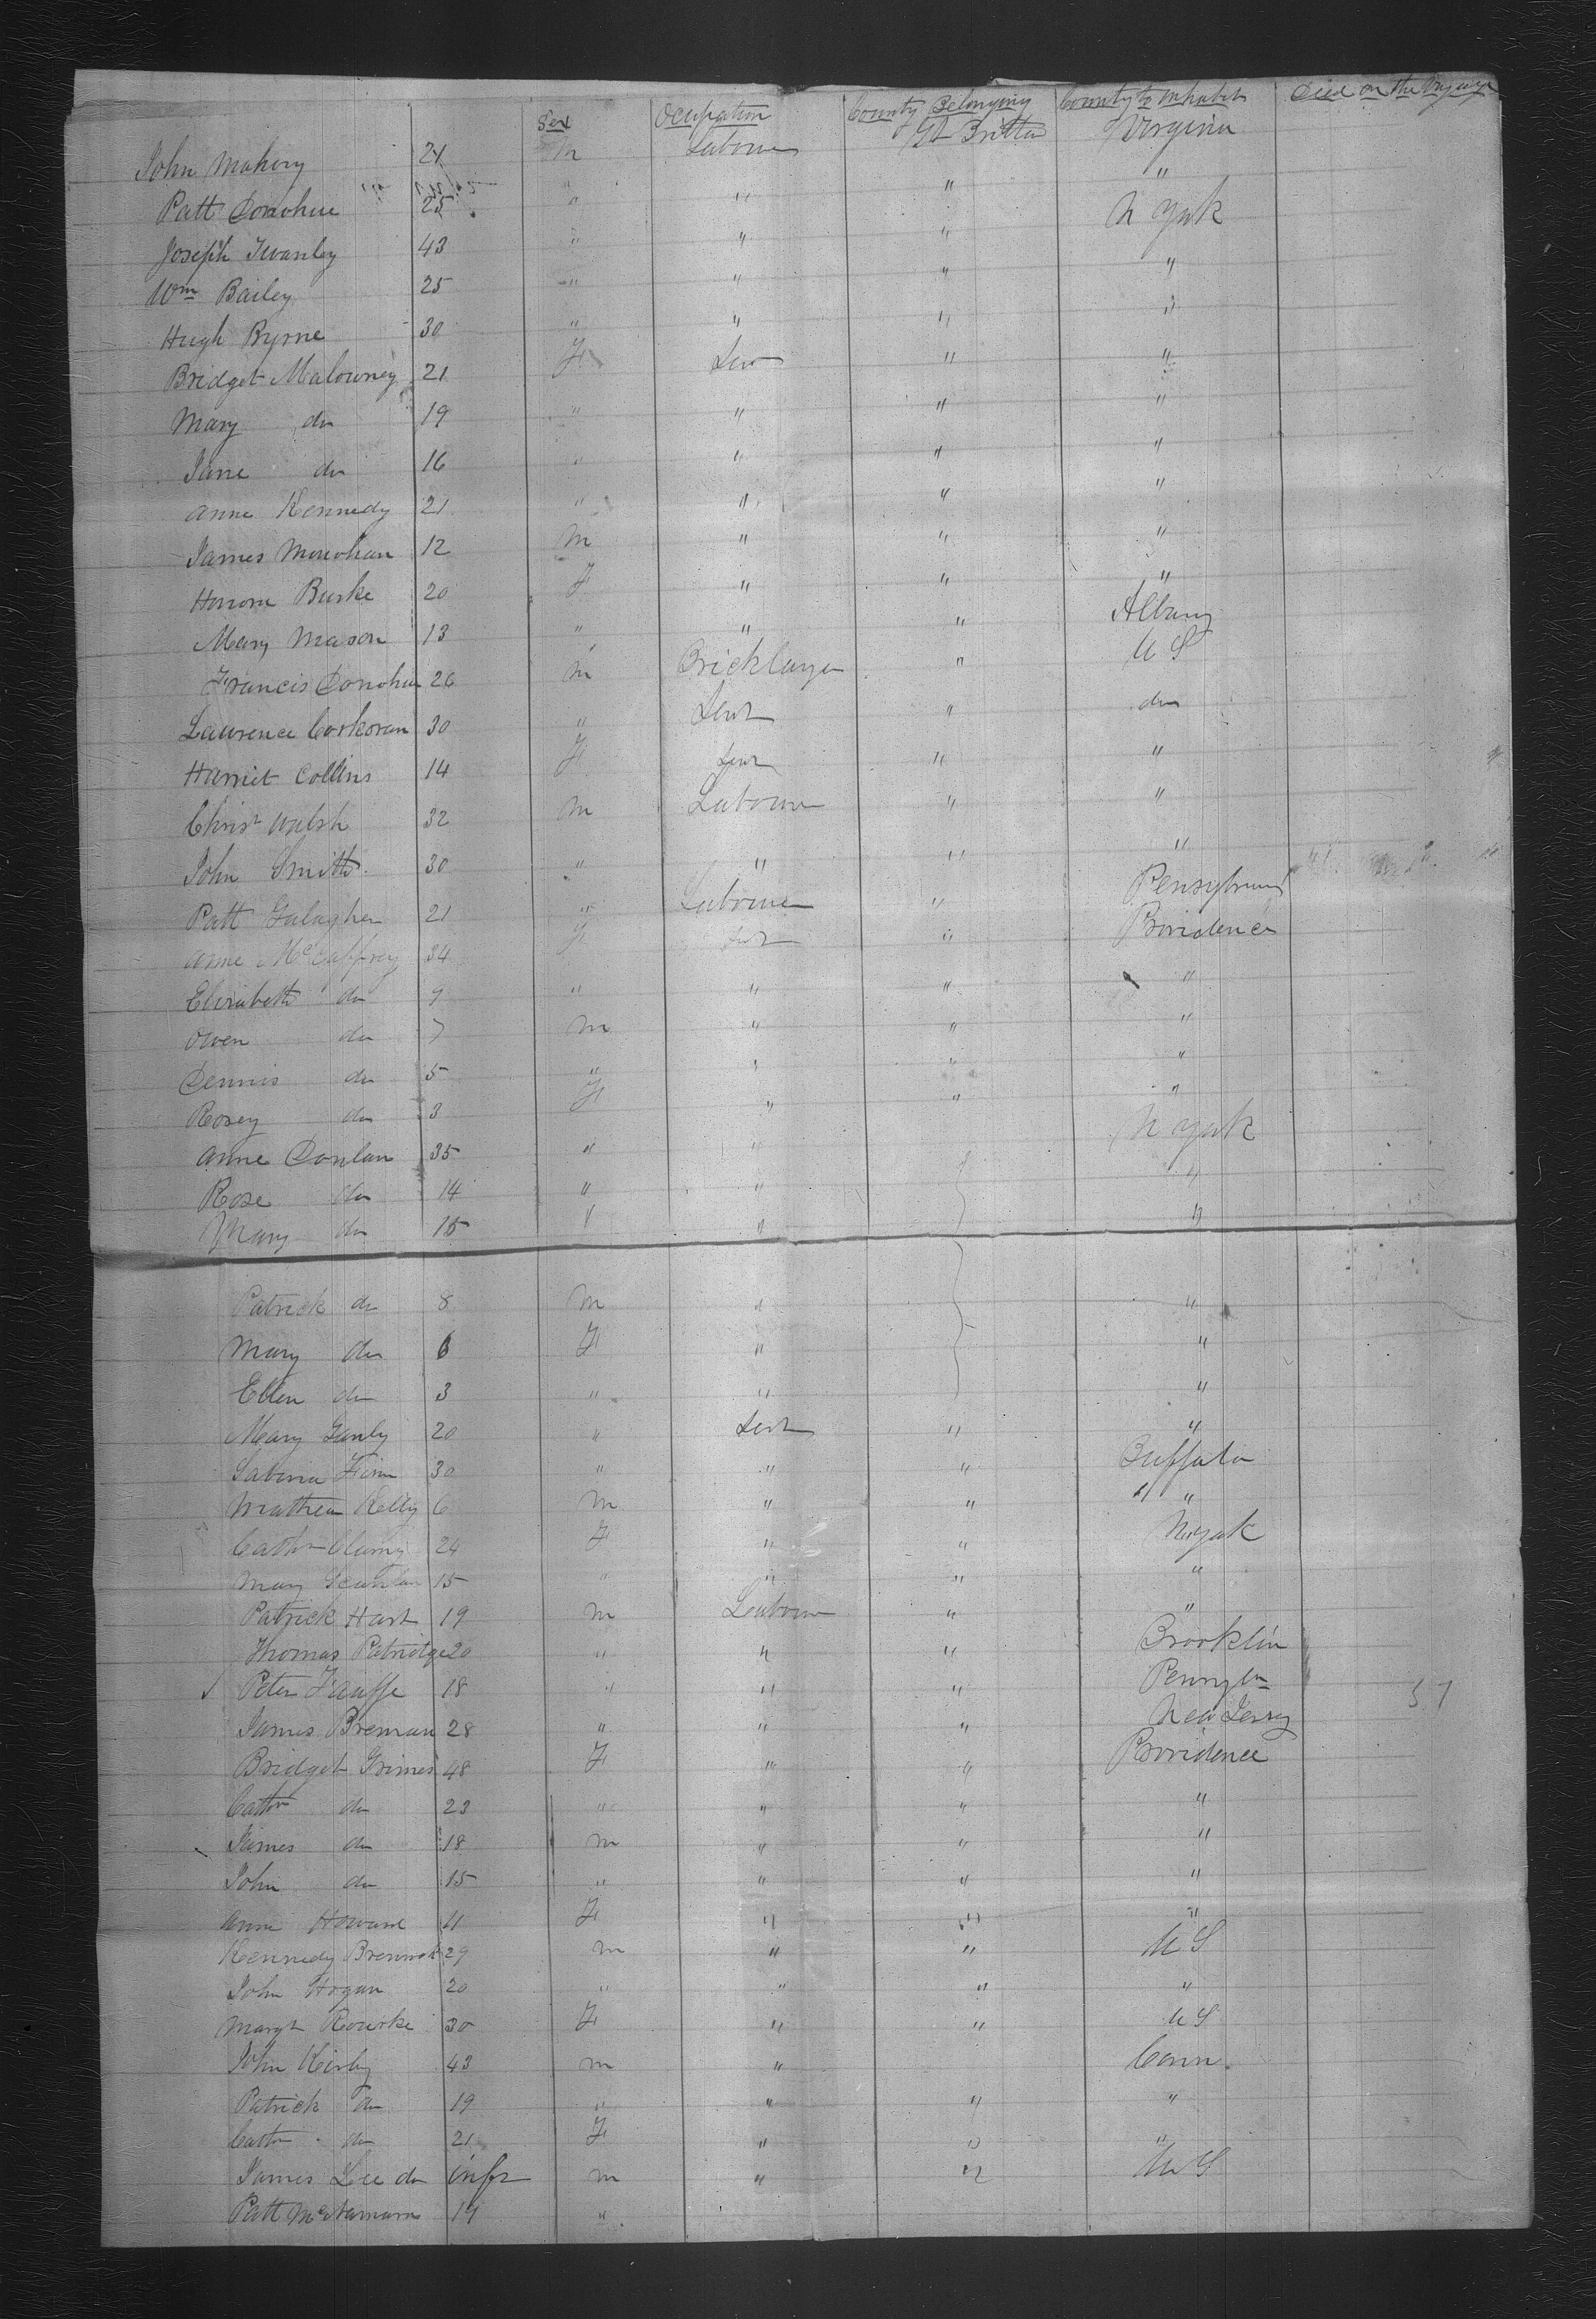 Sex Ocupation County Belonging County to Inhabit Died on the Voyage
John Mahony 24 m Labourer Gt Britton Virginia
Patt Donohue 25 " " " "
Joseph 43 " " " N York
Wm Bailey 25 " " " "
Hugh Byrne 30 " " " "
Bridget Malowney 21 F " "
Mary do 19 " " " "
Jane do 16 " " " "
Anne Kennedy 21 " " " "
James Monohan 12 m " " "
Honora Burke 20 F " " "
Mary Mason 13 " " " Albany
Francis Donohue 26 m Bricklayer " U S
Laurence Corkoran 30 " " do
Harriet Collins 14 F " "
Christ Walsh 32 m Labourer " "
John Smith 30 " " " "
Patt Galagher 21 " Labourer "
Anne McCaffrey 34 F " Providence
Elizabeth do 9 " " " "
Owen do 7 m " " "
Dennis do 5 " " " "
Rosey do 3 F " " "
Anne Donlan 35 " " N York
Rose do 14 " " "
Mary do 15 " " "
Patrick do 8 m " "
Mary do 6 F " "
Ellen do 3 " " "
Mary Ganly 20 " " "
Sabina Finn 30 " " " Buffalo
Mathew Kelly 6 m " " " "
24 F " " N York
Mary Scanlan 15 " " " "
Patrick Hart 19 m Labour " "
Thomas Patridge 20 " " " Brooklin
Peter 18 " " "
James Brenan 28 " " " New Jersey
Bridget Grimes 48 F " " Providence
Cathn do 23 " " " "
James do 18 m " " "
John do 15 " " " "
Anne Howard 11 F " " "
Kennedy 29 m " " U S
John Hogan 20 " " " "
Margt Rourke 30 F " " U S
John Kirby 43 m " Conn
Patrick do 19 " " " "
Cathn do 21 F " " "
James Lee do inft m " " U S
Patt McNamara 19 "